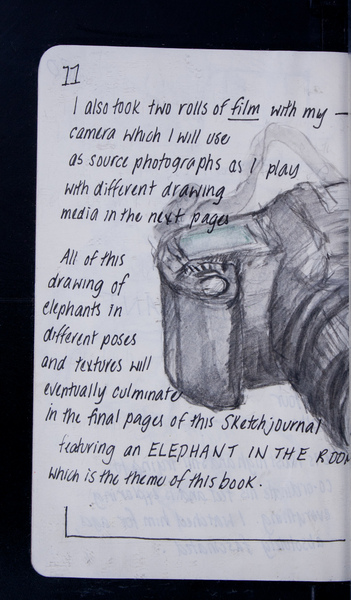 11
I also took two rolls of film with my —
camera which I will use
as source photographs as I play
with different drawing
media in the next pages
All of this
drawing of
elephants in
different poses
and textures will
eventually culminate
in the final pages of this Sketchjournal
featuring an ELEPHANT IN THE ROOM
which is the theme of this book.